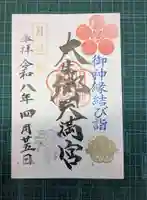 御神縁結び詣
大生郷天満宮
奉拝 令和八年四月廿五日